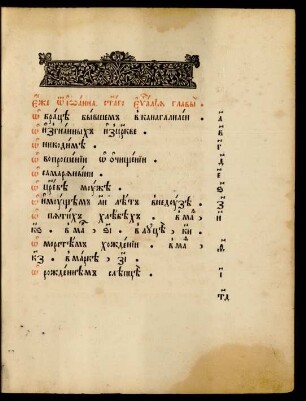 Е҆́же ѿ і҆ѡа́нна, ст҃а́гѡ є҆ѵⷢ҇а́лїѧ главы̀ .
ѡ҆ бра́цѣ бы́вшемъ в̾кана̀галиле́и . а҃
ѡ҆ и҆згна́нныхъ и҆зце́ркве . в҃
ѡ҆ никоди́мѣ . г҃
ѡ҆ вопроше́нїи ѡ҆ ѡ҆чище́нїи . д҃
ѡ҆ самарѧны́ни . є҃
ѡ҆ цре́вѣ мꙋ́же . ѕ҃
ѡ҆ и҆мꙋ́щемъ л҃и лѣ́тъ в̾недꙋ́зѣ . з҃
ѡ҆ пѧти́хъ хлѣ́бѣхъ . в̾маѳ . и҃
к҃ѳ . в̾ма . ѕ҃і . в̾лꙋцѣ . к҃и .
ѡ҆ морстѣ́мъ хожде́нїи . в̾маѳ . ѳ҃
к҃з . в̾ма́рке . з҃і .
ѡ҆ рожде́нѣмъ слѣпцѣ̀ . і҃
т҃д